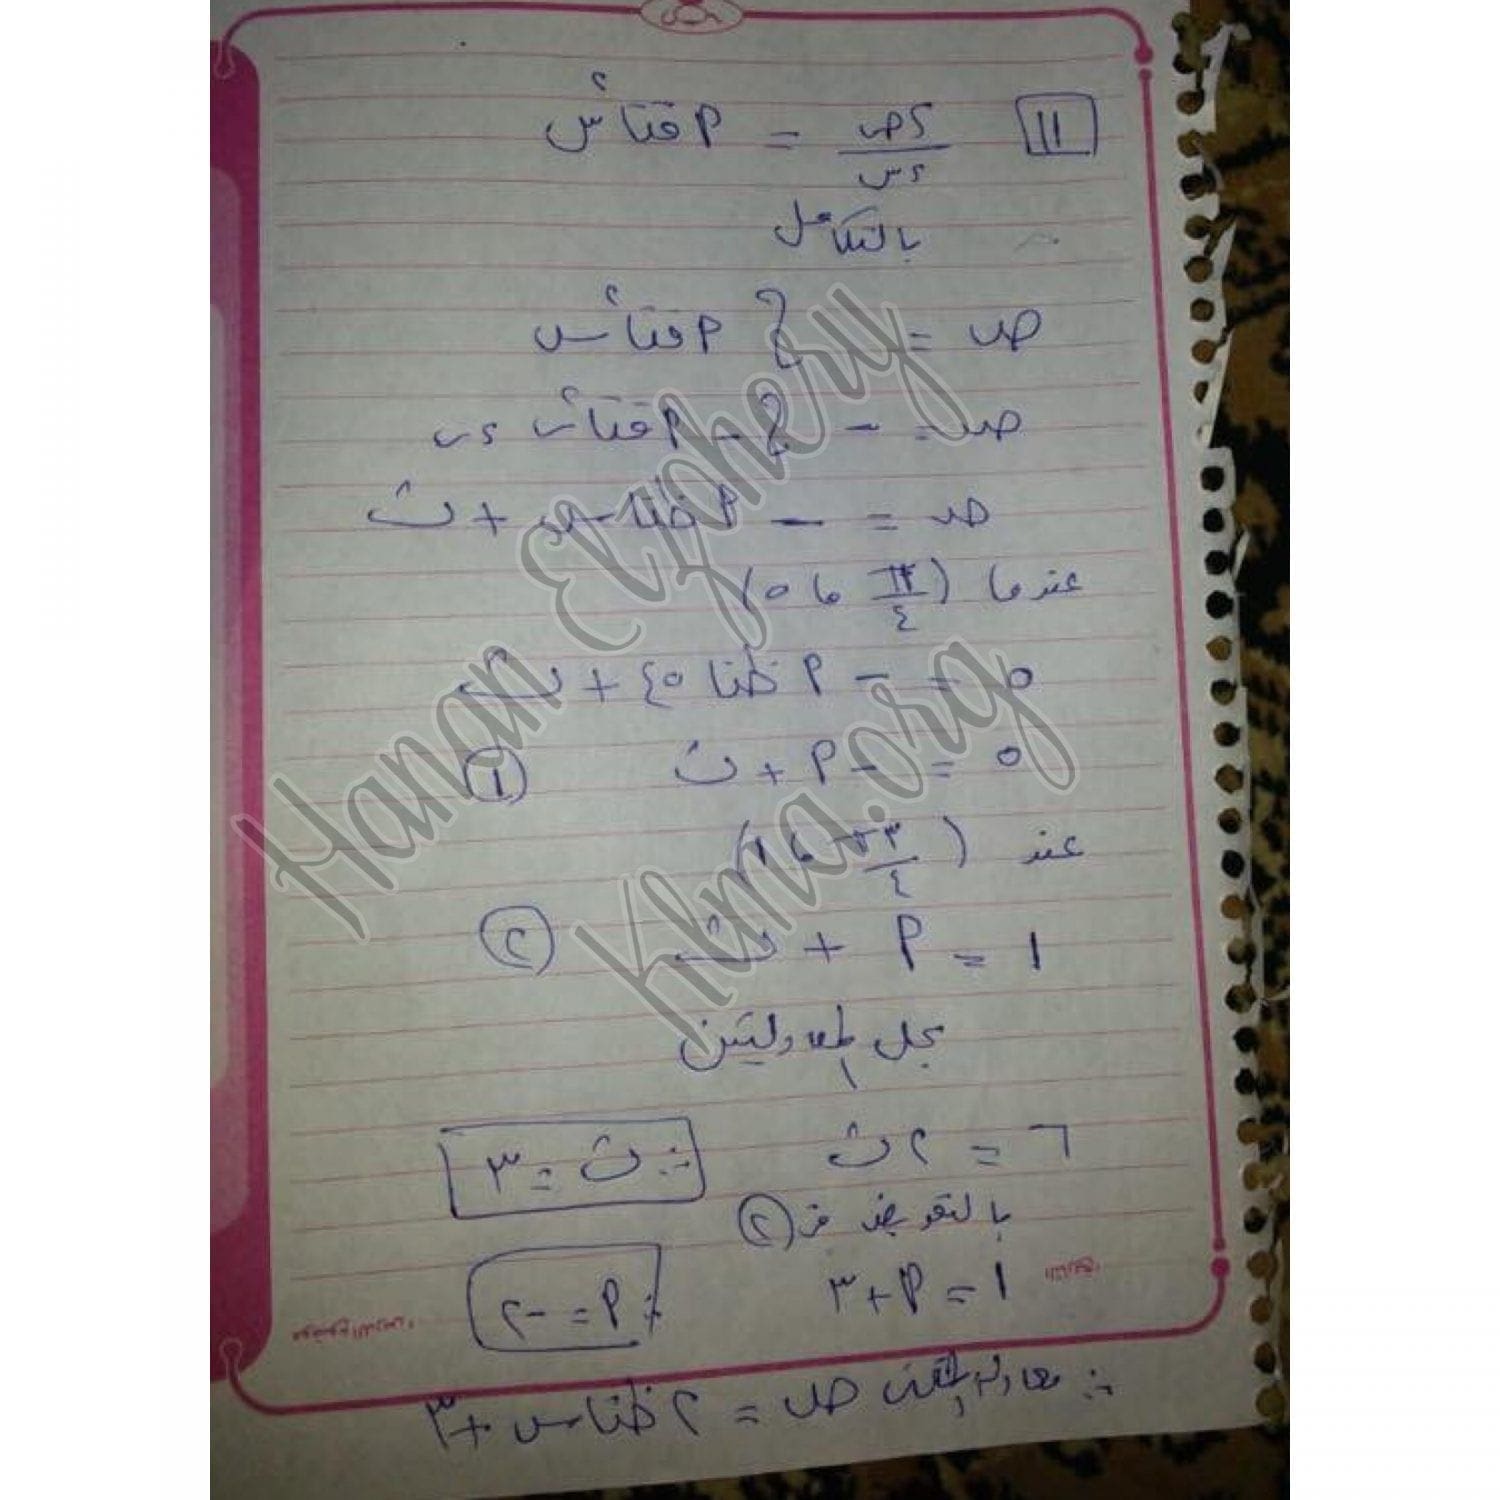 ١١ ءص/ءس = م قتا٢س
بالتكامل
ص = ∫ م قتا٢س
ص = - ∫ - م قتا٢س ءس
ص = - م ظتاس + ث
عندما (π/٤ ، ٥)
٥ = - م ظتا ٤٥ + ث
٥ = - م + ث ١
عند (٣π/٤ ، ١)
١ = م + ث ٢
بحل المعادلتين
٦ = ٢ث ∴ ث = ٣
بالتعويض فى ٢
١ = م + ٣ ∴ م = -٢
∴ معادلة المنحنى ص = ٢ ظتاس + ٣
Hanan Elzhery
Klma.org